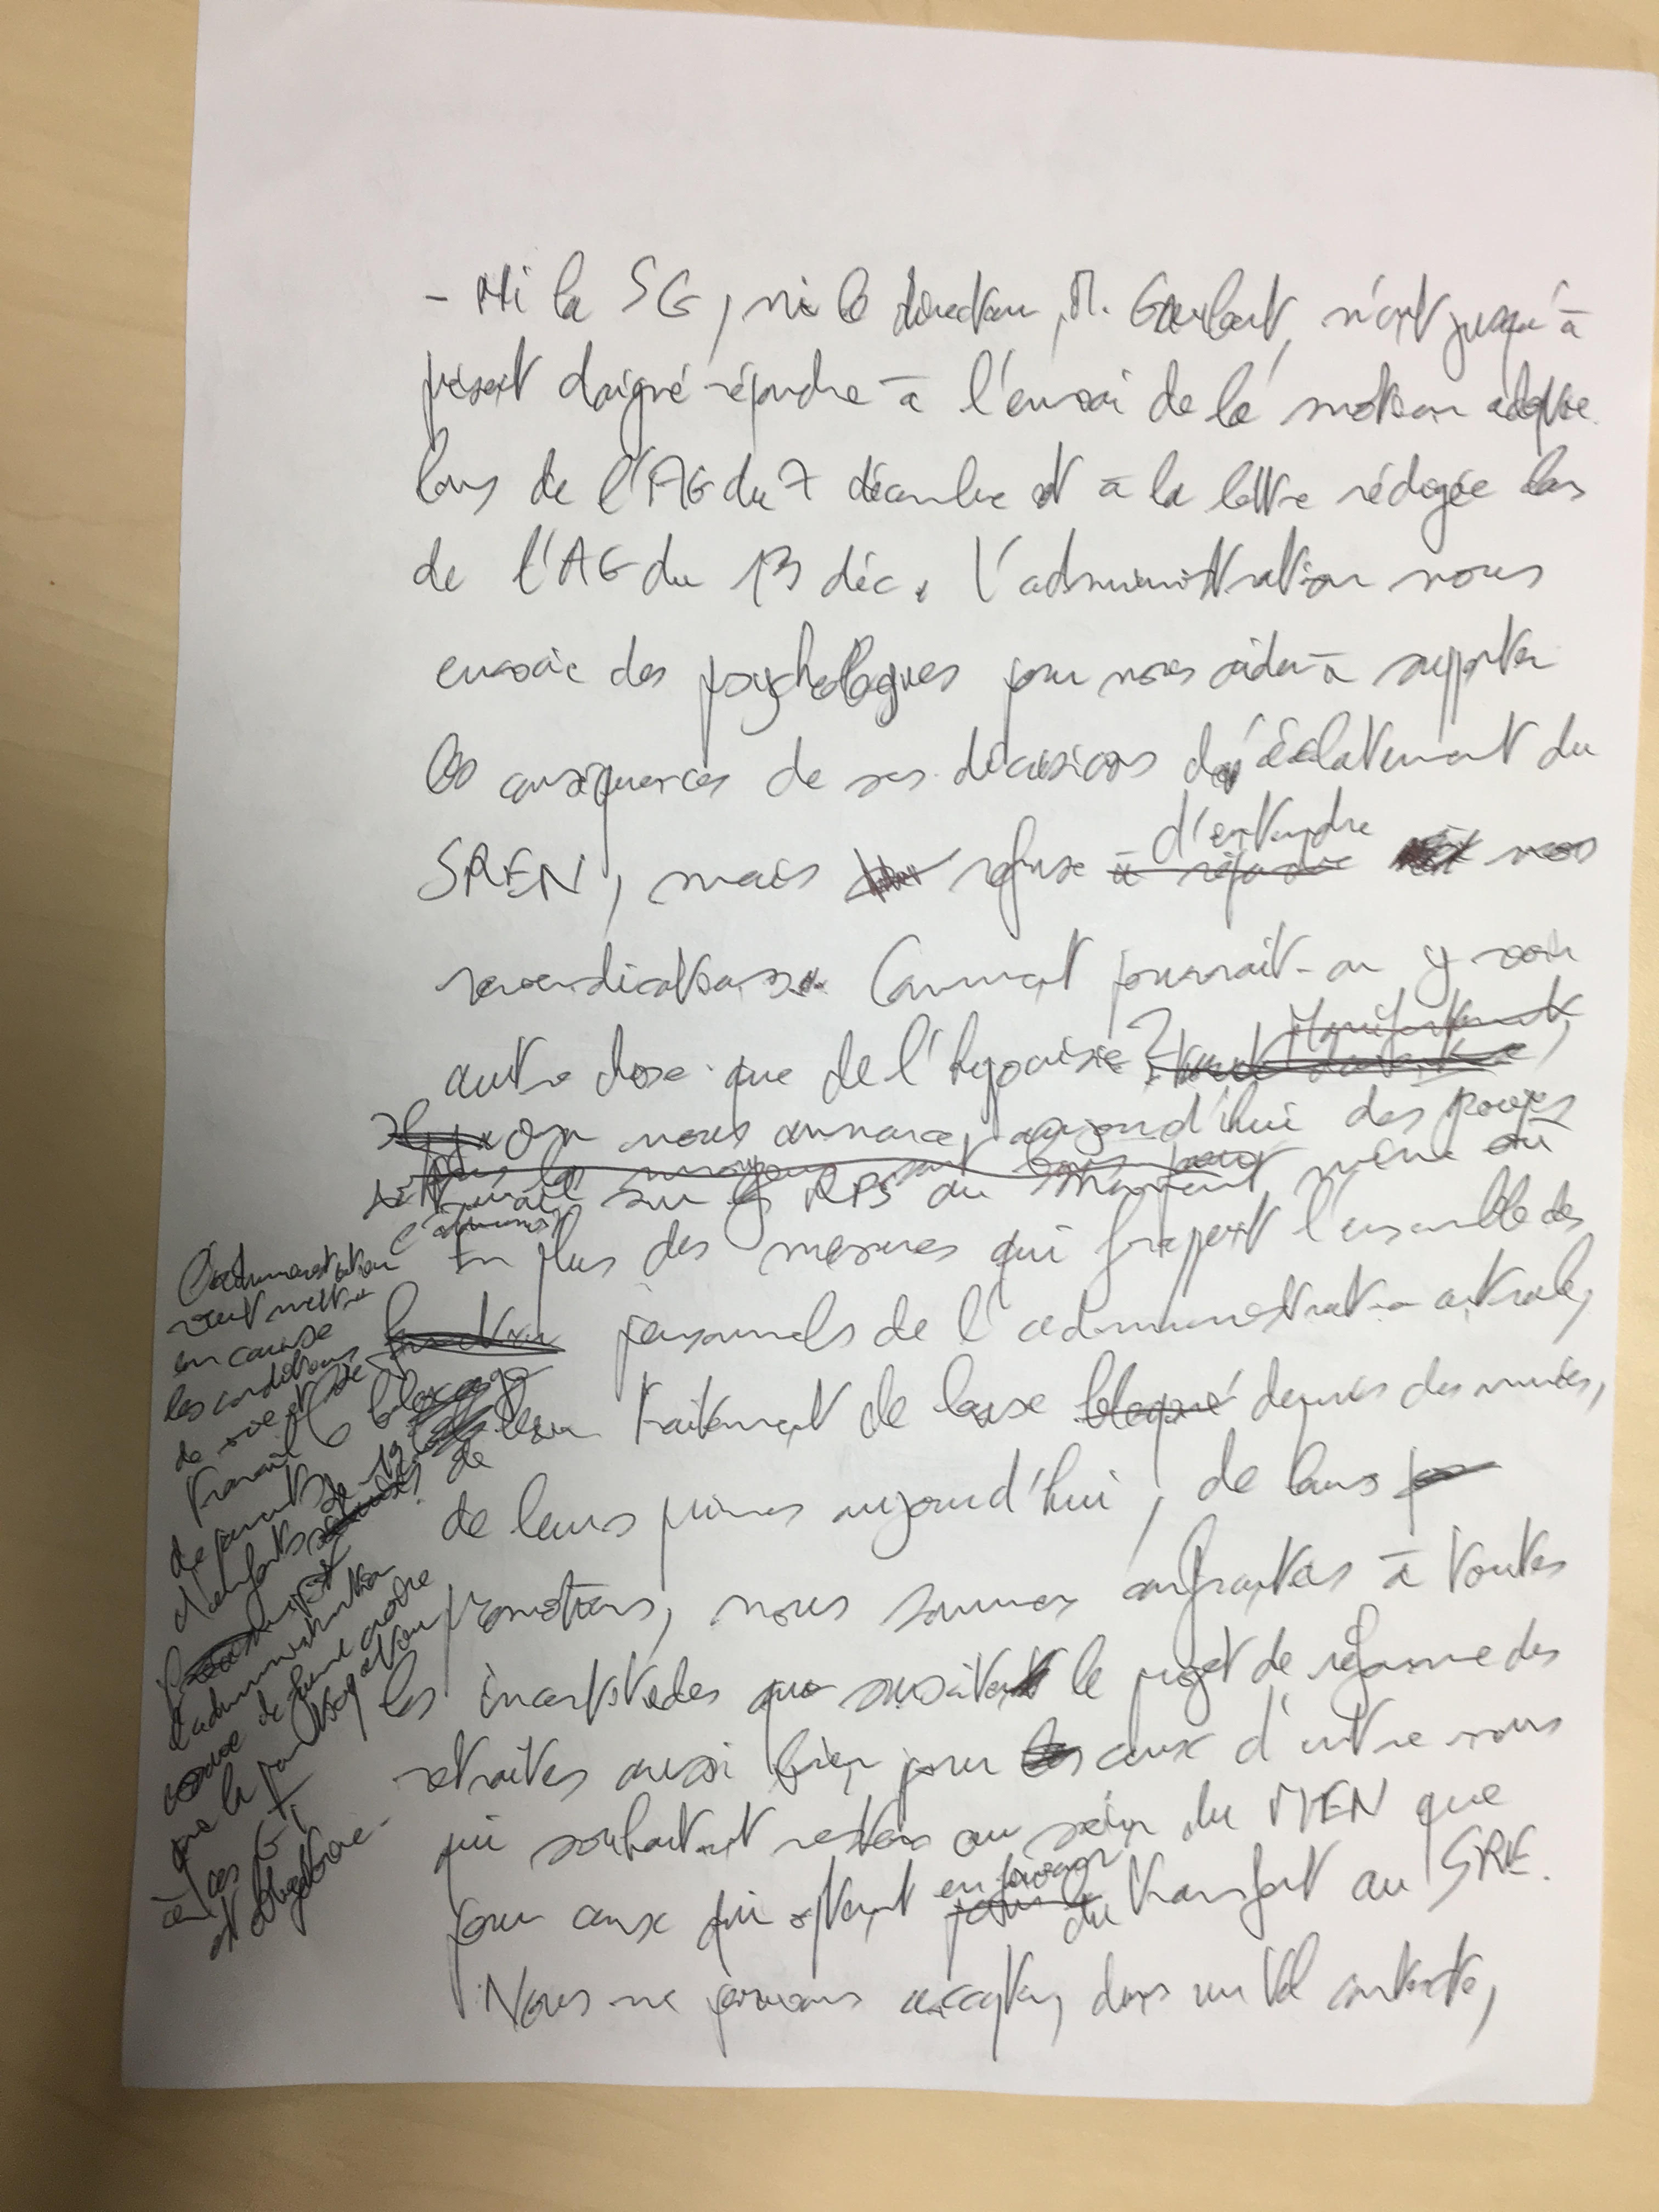 - Ni la SG, ni le directeur, M. n'ont jusqu'à
présent daigné répondre à l'envoi de la motion adoptée
lors de l'AG du 7 décembre et à la lettre rédigée lors
de l'AG du 13 déc. L'administration nous
envoie des psychologues pour nous aider à supporter
les conséquences de ses décisions d'éclatement du
d'entendre
SREN, mais refuse à répondre nos
revendications. Comment pourrait-on y voir
autre chose que de l'hypocrisie ?
Manifestement,
On nous annonce, aujourd'hui des
travail sur les RPS au moment même où
l'admin
En plus des mesures qui frappent l'ensemble des
personnels de l'administration centrale,
le blocage
de leur traitement de base bloqué depuis des années,
de leurs primes aujourd'hui, de leurs
promotions, nous sommes confrontés à toutes
les incertitudes que suscitent le projet de réforme des
retraites aussi bien pour ceux d'entre nous
qui souhaitent rester au sein du MEN que
en faveur
pour ceux qui optent pour le du transfert au SRE.
Nous ne pouvons accepter, dans un tel contexte,
L'administration
veut mettre
en cause
les conditions
de vie et de
travail
de parents
d'enfants
l'administration
de faire croire
que la
à ces
est obligatoire.